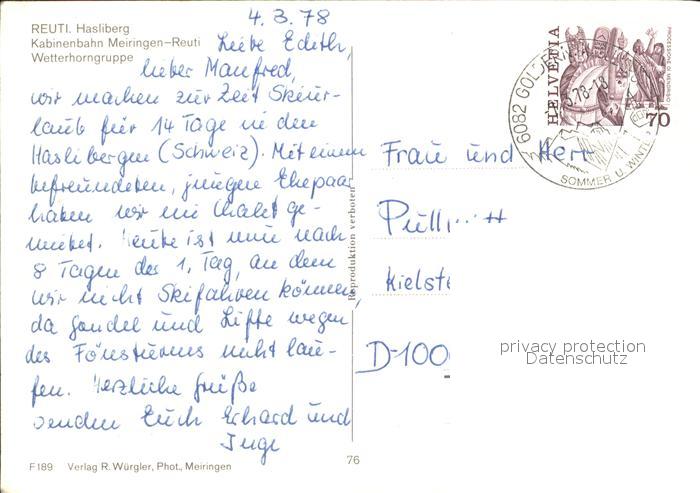 4.3.78
REUTI. Hasliberg
Kabinenbahn Meiringen–Reuti
Wetterhorngruppe
Liebe Edith,
lieber Manfred,
wir machen zur Zeit Skiur-
laub für 14 Tage in den
Haslibergen (Schweiz). Mit einem
befreundeten, jungen Ehepaar
haben wir ein Chalet ge-
mietet. Heute ist nun nach
8 Tagen der 1. Tag, an dem
wir nicht Skifahren können,
da Gondel und Lifte wegen
des Föhnsturms nicht lau-
fen. Herzliche Grüße
senden Euch Erhard und
Inge
F189 Verlag R. Würgler, Phot., Meiringen
76
Reproduktion verboten
HELVETIA
70
6082 GOLDERN
3.78-18
SOMMER U. WINT
Frau und Herr
Kielst
D-100
privacy protection
Datenschutz